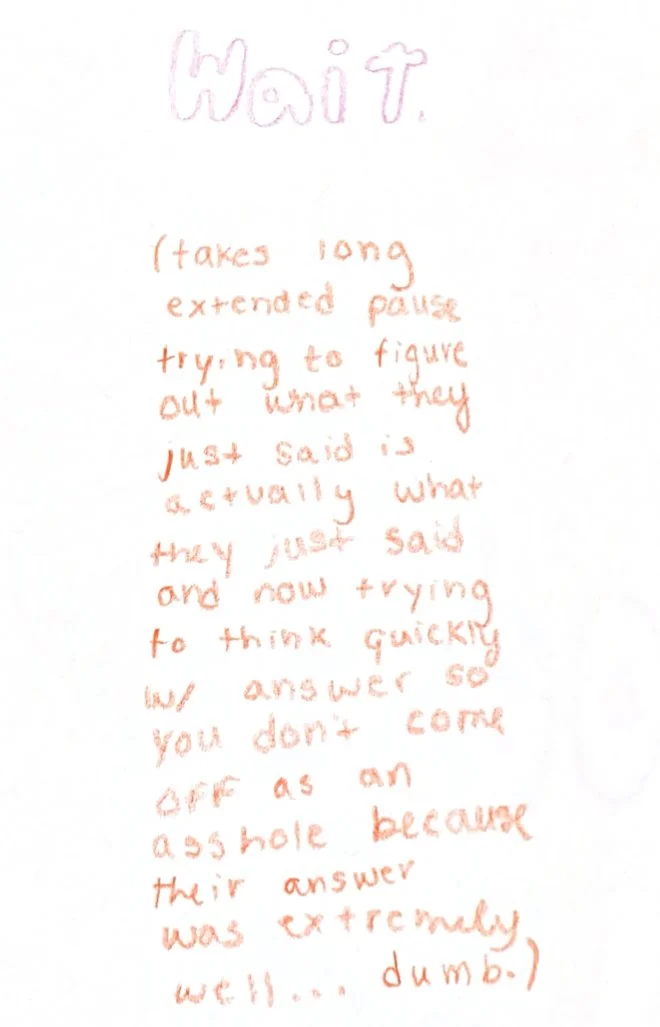 Wait.
(takes long
extended pause
trying to figure
out what they
just said is
actually what
they just said
and now trying
to think quickly
w/ answer so
you don't come
off as an
asshole because
their answer
was extremely
well... dumb.)